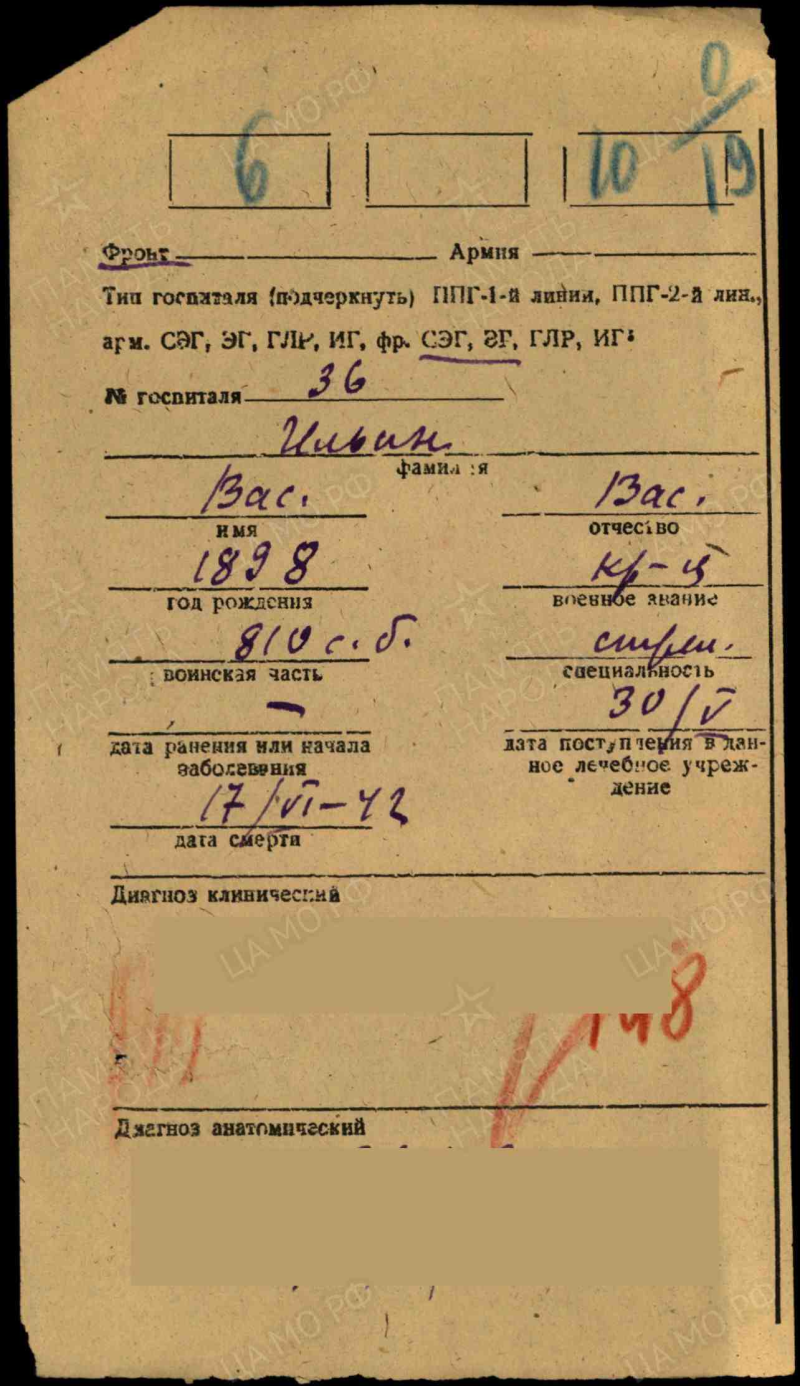 0
6 10 19
Фронт Армия
Тип госпиталя (подчеркнуть) ППГ-1-й линии, ППГ-2-й лин.,
арм. СЭГ, ЭГ, ГЛР, ИГ, фр. СЭГ, ЭГ, ГЛР, ИГ.
№ госпиталя 36
Ильин
фамилия
Вас. Вас.
имя отчество
1898 кр-ц
год рождения военное звание
810 с. б. стрел.
воинская часть специальность
— 30/V
дата ранения или начала заболевания дата поступления в данное лечебное учреждение
17/VI-42
дата смерти
Диагноз клинический
Диагноз анатомический
ЦАМО РФ
ПАМЯТЬ НАРОДА